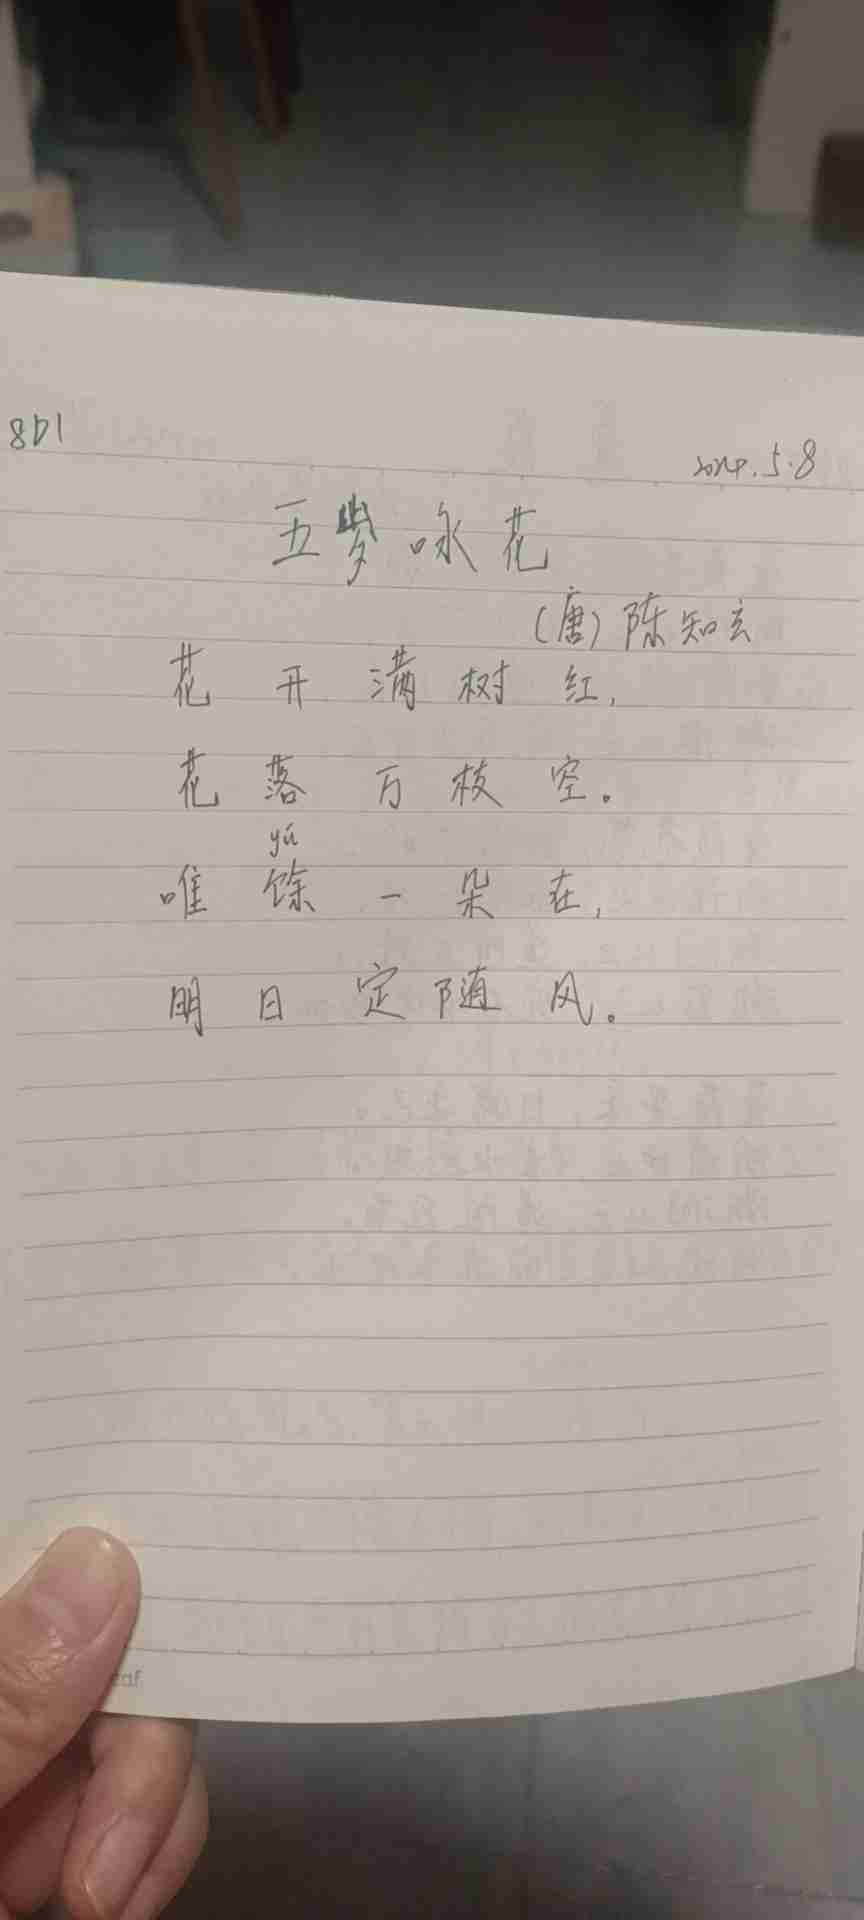 8D1
2024.5.8
五岁咏花
(唐)陈知玄
花开满树红,
花落万枝空。
yú
唯馀一朵在,
明日定随风。